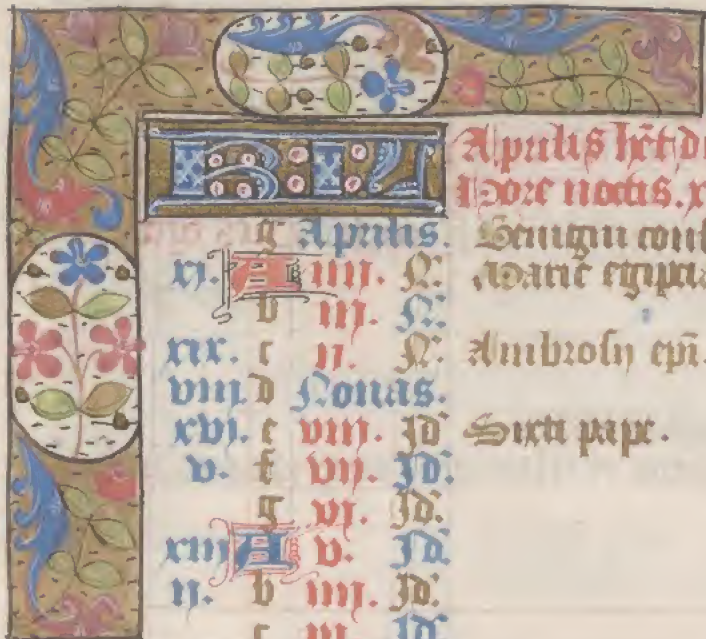 KL
Aprilis hēt d
Hore noctis. x
g Aprilis. Benigni conf
xi. A iiii. N. Marie egiptia
b iii. N.
xix. c ii. N. Ambrosii epi.
viii. d Nonas.
xvi. e viii. Id Sixti pape.
v. f vii. Id.
g vi. Id.
xiii A v. Id.
ii. b iiii. Id.
c iii. Id.